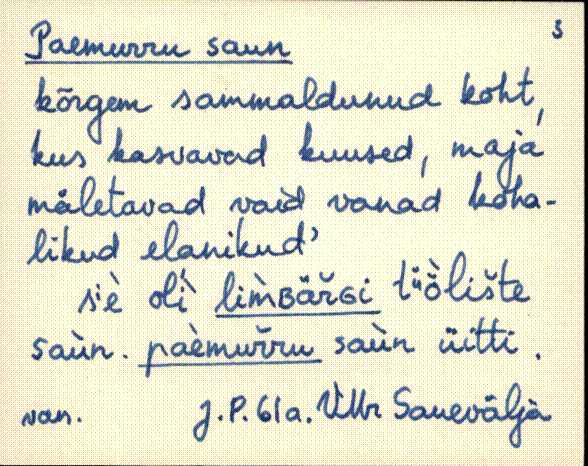 s
Paemurru saun
kõrgem sammaldunud koht,
kus kasvavad kuused, maja
mäletavad vaid vanad koha-
likud elanikud'
s'è olì̬ lim̀BäřGi tüö̀lište
saùn. paèmuřru saùn üitti.
van. J.P. 61a. VMr Sauevälja